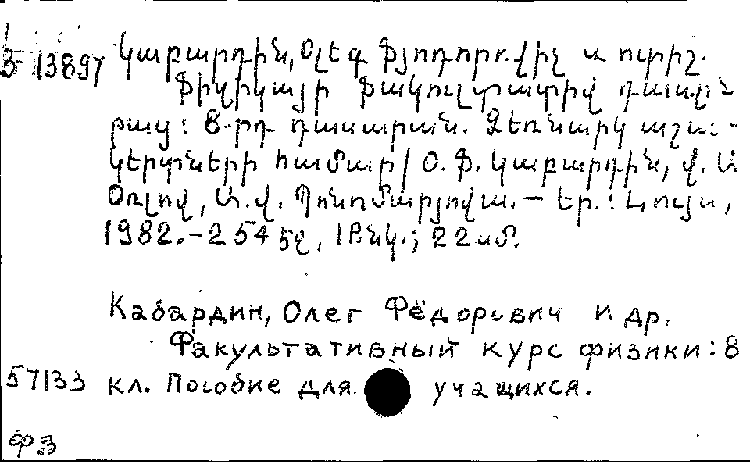 Յ 13897 Կաբարդին, Օլեգ Ֆյոդորովիչ և ուրիշ.
Ֆիզիկայի ֆակուլտատիվ դասըն-
թաց: 8-րդ դասարան. Ձեռնարկ աշա-
կերտների համար / Օ. Ֆ. Կաբարդին, Վ. Ա.
Օռլով, Ա. Վ. Պոնոմարյովա. — Եր.: Լույս,
1982. — 254 էջ, նկ.; 22 սմ.
Кабардин, Олег Фёдорович и др.
Факультативный курс физики: 8
57133 кл. Пособие для учащихся.
ФЗ